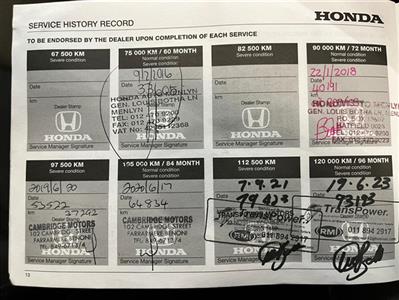 SERVICE HISTORY RECORD
HONDA
TO BE ENDORSED BY THE DEALER UPON COMPLETION OF EACH SERVICE
67 500 KM
Severe condition
Date
km
Dealer Stamp
HONDA
Service Manager Signature
75 000 KM / 60 MONTH
Normal condition
Severe condition
HONDA
MENLYN
GEN. LOUIS BOTHA LN
MENLYN
TEL: 012 470 9200
FAX: 012 470
VAT No:
HONDA
Service Manager Signature
82 500 KM
Severe condition
Date
km
Dealer Stamp
HONDA
Service Manager Signature
90 000 KM / 72 MONTH
Normal condition
Severe condition
22/1/2018
40191
GEN. LOUIS BOTHA LN
HATFIELD 0028
HONDA
Service Manager Signature
97 500 KM
Severe condition
Date
53522
km
27242
CAMBRIDGE MOTORS
102 CAMBRIDGE STREET
FARRARMERE BENONI
TEL: 849-6717/4
HONDA
Service Manager Signature
105 000 KM / 84 MONTH
Normal condition
Severe condition
2020/6/17
64834
CAMBRIDGE MOTORS
102 CAMBRIDGE STREET
FARRARMERE BENONI
TEL: 849-6717/4
Service Manager Signature
112 500 KM
Severe condition
7.9.21
RMI
011 894 2917
Service Manager Signature
120 000 KM / 96 MONTH
Normal condition
Severe condition
19.6.23
93123
TransPower.
RMI
011 894 2917
Service Manager Signature
13